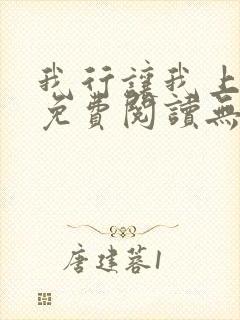 我行讓我上
免費閱讀無
唐建蓉1